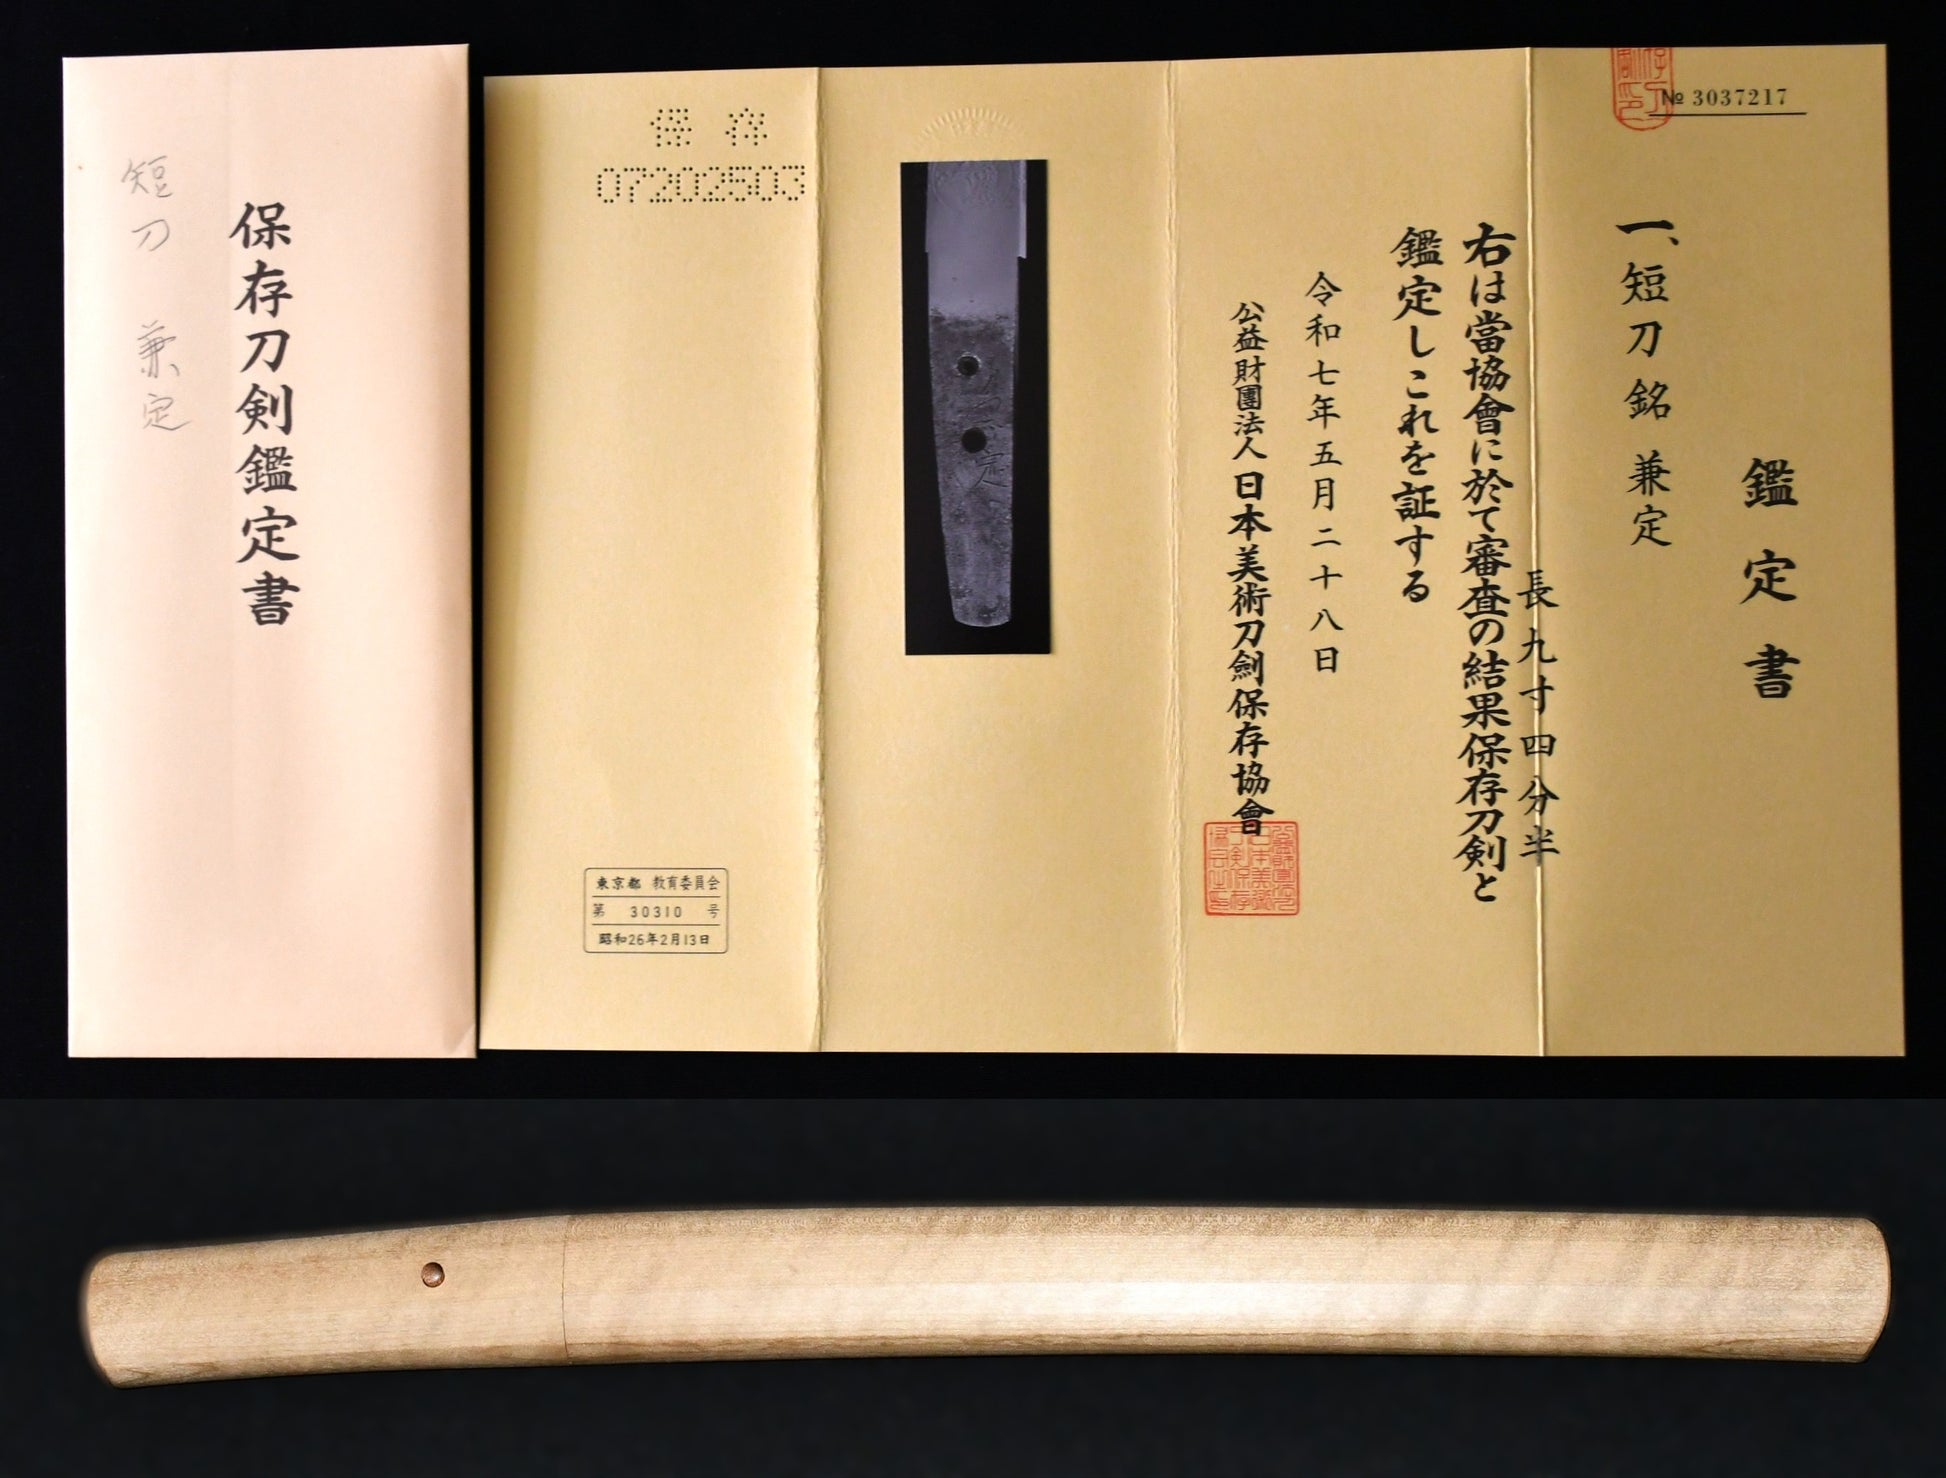 短刀 兼定
保存刀剣鑑定書
№ 3037217
鑑定書
一、短刀 銘 兼定
長九寸四分半
右は當協會に於て審査の結果保存刀剣と
鑑定しこれを証する
令和七年五月二十八日
公益財團法人 日本美術刀劍保存協會
定
保存
07202503
東京都 教育委員会
第 30310 号
昭和26年2月13日